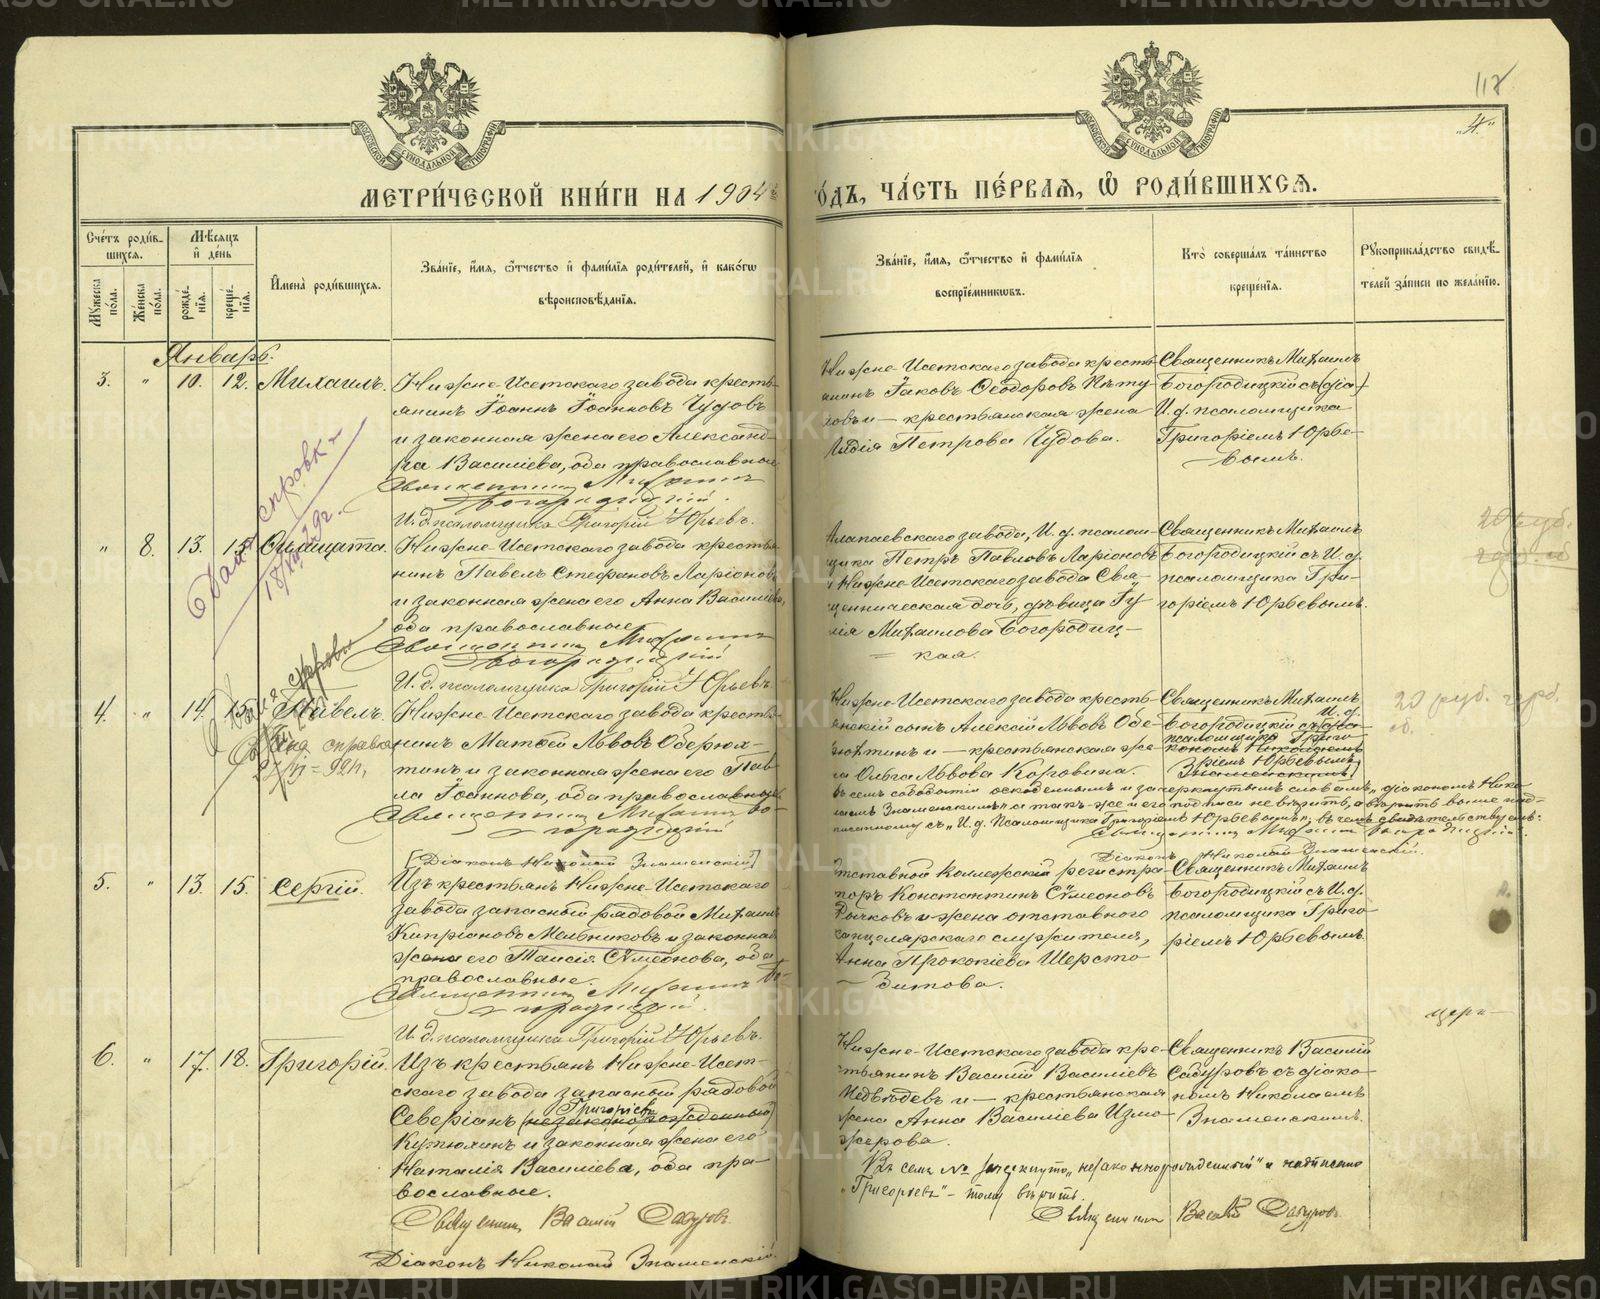 117
„4.“
МОСКОВСКОЙ СѴНОДАЛЬНОЙ ТИПОГРАФІИ
МОСКОВСКОЙ СѴНОДАЛЬНОЙ ТИПОГРАФІИ
МЕТРИ́ЧЕСКОЙ КНИ́ГИ НА 1904
ГО́ДЪ, ЧА́СТЬ ПЕ́РВАЯ, Ѽ РОДИ́ВШИХСЯ.
Сче́тъ роди́в-
шихся.
Му́жеска по́ла.
Же́нска по́ла.
Мѣ́сяцъ и де́нь
рожде́нїя.
креще́нїя.
И҆мена̀ роди́вшихся.
Зва́нїе, и҆́мя, ѻ҆́тчество и҆ фами́лїя роди́телей, и҆ како́гѡ
вѣроисповѣ́данїя.
Зва́нїе, и҆́мя, ѻ҆́тчество и҆ фами́лїя
воспрїе́мникѡвъ.
Кто̀ соверша́лъ та́инство
креще́нїя.
Рꙋкоприкла́дство свидѣ́-
телей за́писи по жела́нїю.
Январь.
3. „ 10. 12. Михаилъ.
Нижне-Исетскаго завода кресть-
янинъ Іоаннъ Іоанновъ Чудовъ
и законная жена его Александ-
ра Василіева, оба православные
Священникъ Михаилъ
Богородицкій.
И. д. псаломщика Григорій Юрьевъ.
Нижне-Исетскаго завода кресть-
янинъ Іаковъ Ѳеодоровъ Пѣту-
ховъ и — крестьянская жена
Лидія Петрова Чудова.
Священникъ Михаилъ
Богородицкій съ (діа)
И. д. псаломщика
Григоріемъ Юрье-
вымъ.
„ 8. 13. 15.
Нижне-Исетскаго завода кресть-
нинъ Павелъ Стефановъ Ларіоновъ
и законная жена его Анна Василіева,
оба православные
Священникъ Михаилъ
Богородицкій
И. д. псаломщика Григорій Юрьевъ.
Алапаевскаго завода, И. д. псалом-
щика Петръ Павловъ Ларіоновъ
и Нижне-Исетскаго завода Свя-
щенническая дочь, дѣвица Іу
лія Михаилова Богородиц-
кая.
Священникъ Михаилъ
Богородицкій съ И. д.
псаломщика Гри-
горіемъ Юрьевымъ.
20 руб.
4. „ 14. 15. Павелъ.
Дана справка
Нижне-Исетскаго завода кресть-
нинъ Матѳей Львовъ Оберюх-
тинъ и законная жена его Пав-
ла Іоаннова, оба православные
Священникъ Михаилъ Бо-
городицкій
[Діаконъ Николай Знаменскій]
Нижне-Исетскаго завода кресть-
янскій сынъ Алексій Львовъ Обе-
рюхтинъ и — крестьянская же-
на Ольга Львова Коровина.
Священникъ Михаилъ
И. д.
Богородицкій съ діа-
псаломщика Григо-
кономъ Николаемъ
ріемъ Юрьевымъ
Знаменскимъ]
20 руб.
Діаконъ Николай Знаменскій.
5. „ 13. 15. Сергій.
Изъ крестьянъ Нижне-Исетскаго
завода запасный рядовой Михаилъ
Кипріановъ Мельниковъ и законная
жена его Таисія Сѵмеонова, оба
православные.
Священникъ Михаилъ Бо-
городицкій.
И. д. псаломщика Григорій Юрьевъ.
Отставной Коллежскій регистра-
торъ Константинъ Сѵмеоновъ
Рычковъ и жена отставного
канцелярскаго служителя,
Анна Прокопіева Шерсто
битова.
Священникъ Михаилъ
Богородицкій съ И. д.
псаломщика Григо-
ріемъ Юрьевымъ.
6. „ 17. 18. Григорій.
Изъ крестьянъ Нижне-Исет-
скаго завода запасный рядовой
Григорьевъ
Северіанъ (незаконорожденный)
Кутюхинъ и законная жена его
Наталія Василіева, оба пра-
вославные.
Священникъ Василій Сабуровъ.
Діаконъ Николай Знаменскій.
Нижне-Исетскаго завода кре-
стьянинъ Василій Василіевъ
Недвѣдевъ и — крестьянская
жена Анна Василіева Измо-
жерова.
Священникъ Василій
Сабуровъ съ діако-
номъ Николаемъ
Знаменскимъ.
Въ семъ № зачеркнуто „незаконнорожденный“ и надписано
„Григорьевъ“ – тому вѣрить.
Священникъ Василій Сабуровъ